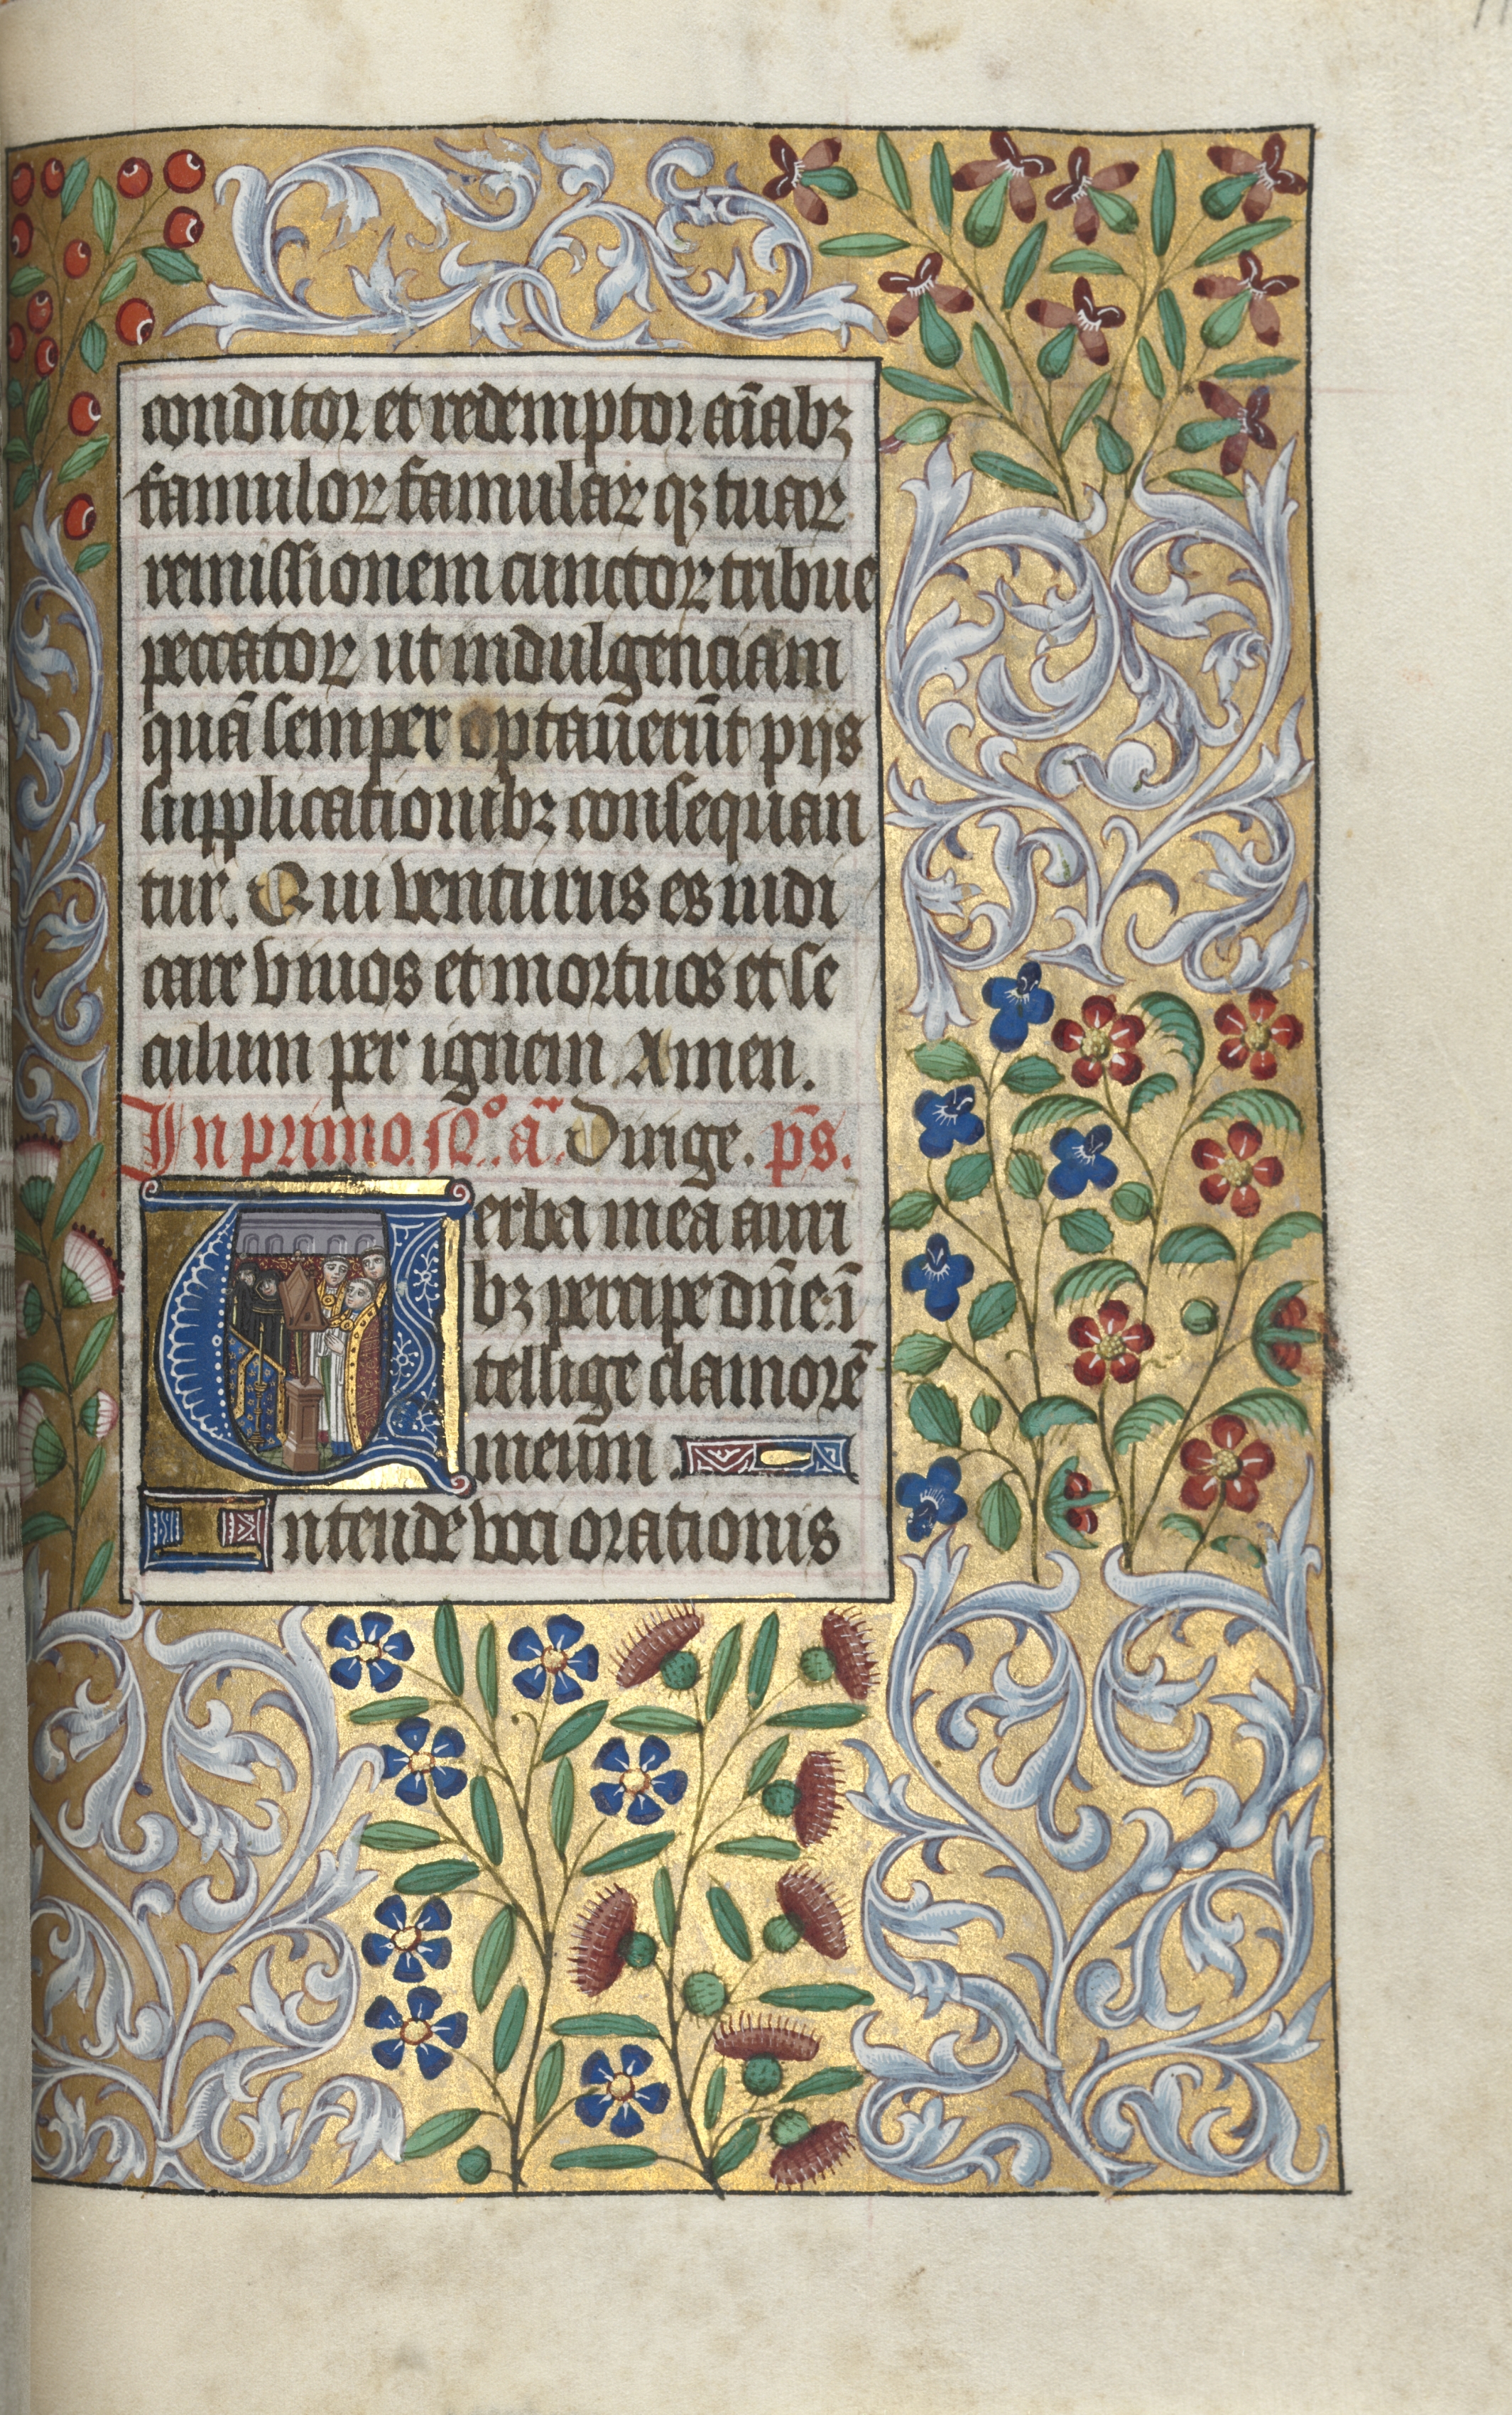 conditor et redemptor aīabꝫ
famuloꝝ famulaꝝ qꝫ tuaꝝ
remissionem cunctoꝝ tribue
peccatoꝝ ut indulgenciam
quā semper optaūerūt pijs
supplicationibꝫ consequan
tur. Qui venturus es iudi
care viuos et mortuos et se
culum per ignem. Amen.
In primo. nō. ā. Dirige. ps̄.
Verba mea auri
bꝫ percipe dn̄e: ī
tellige clamorē
meūm
Intende voci orationis